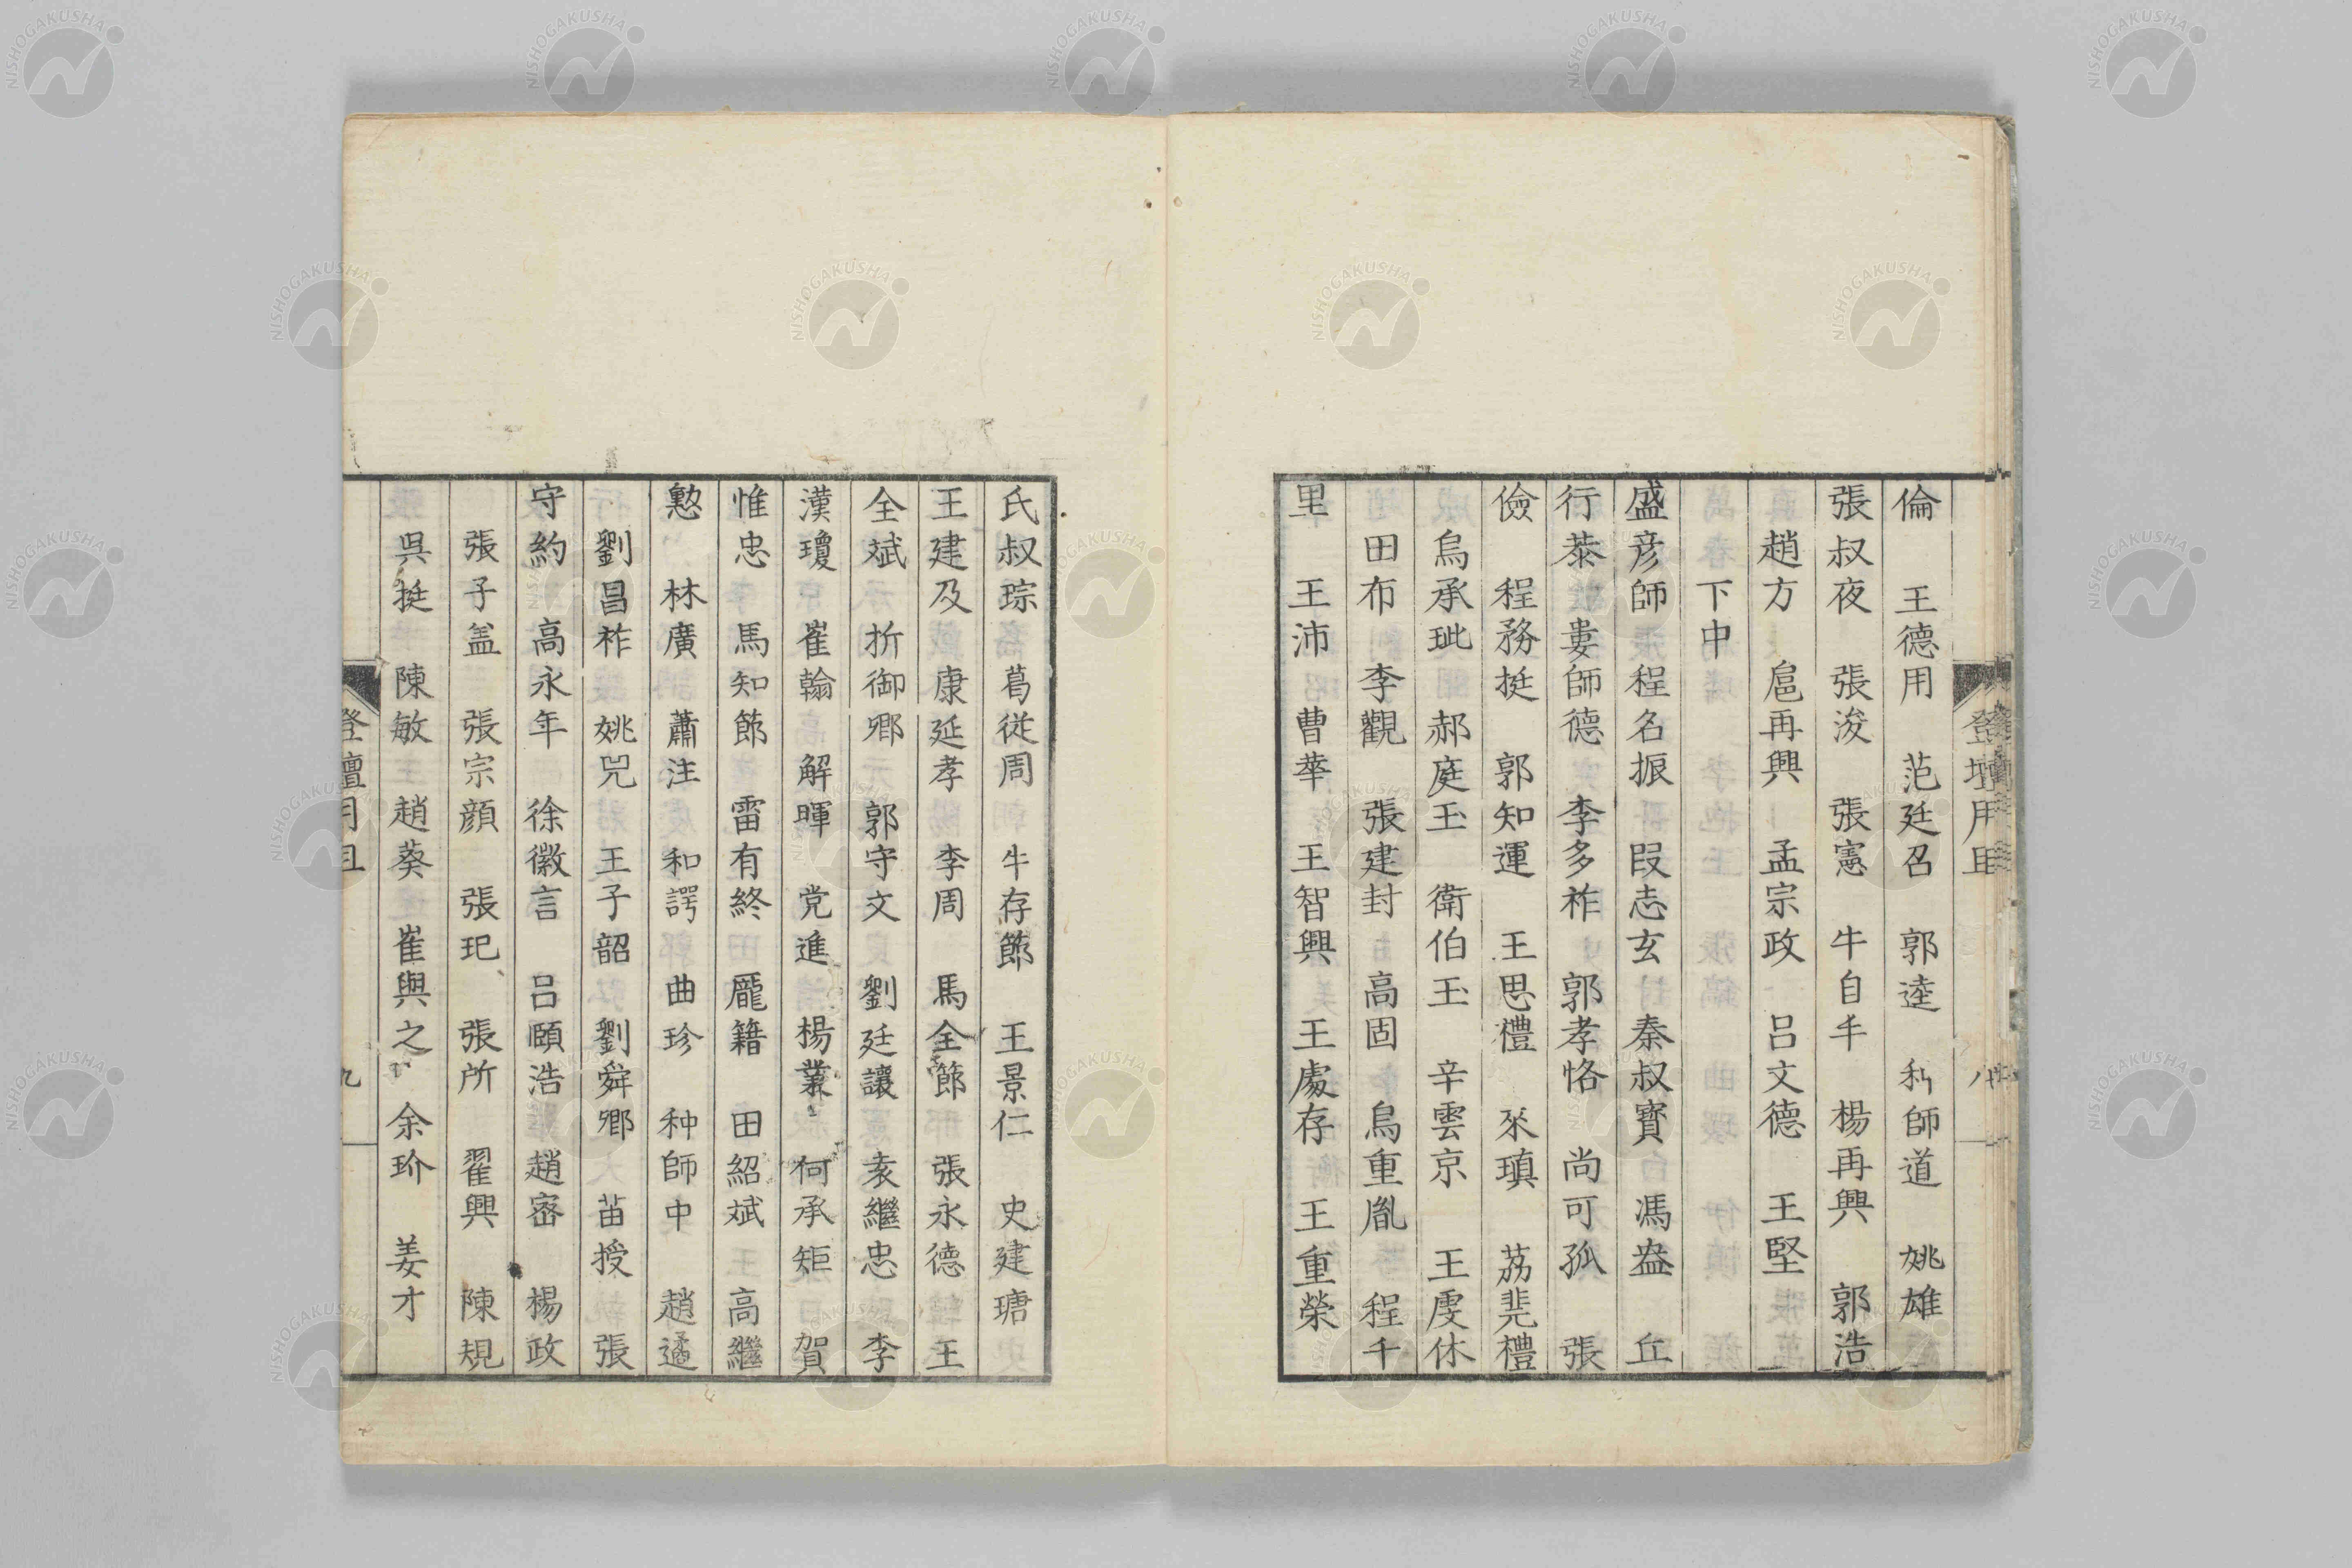 倫　王德用　范廷召　郭逵　种師道　姚雄
張叔夜　張浚　張憲　牛自千　楊再興　郭浩
趙方　扈再興　孟宗政　呂文德　王堅
下中
盛彦師　程名振　段志玄　秦叔寶　馮盎　丘
行恭　婁師德　李多祚　郭孝恪　尚可孤　張
儉　程務挺　郭知運　王思禮　來瑱　荔非禮
烏承玼　郝庭玉　衛伯玉　辛雲京　王虔休
田布　李觀　張建封　高固　烏重胤　程千
里　王沛　曹華　王智興　王處存　王重榮
登壇用
八
氏叔琮　葛從周　牛存節　王景仁　史建瑭
王建及　康延孝　李周　馬全節　張永德　王
全斌　折御卿　郭守文　劉廷讓　袁繼忠　李
漢瓊　崔翰　解暉　党進　楊業　何承矩　賀
惟忠　馬知節　雷有終　龐籍　田紹斌　高繼
勳　林廣　蕭注　和諤　曲珍　种師中　趙遹
劉昌祚　姚兕　王子韶　劉舜卿　苗授　張
守約　高永年　徐徽言　呂頤浩　趙密　楊政
張子盖　張宗顏　張玘　張所　翟興　陳規
吳挺　陳敏　趙葵　崔與之　余玠　姜才
登壇
九
NISHOGAKUSHA